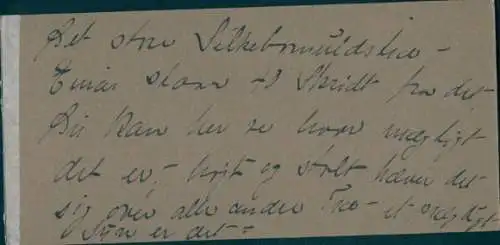 Det store Silkebomuldstræ –
Einar staar 43 Skridt fra det,
Du kan her se hvor mægtigt
det er, – højt og stolt hæver det
sig over alle andre Træ – et mægtigt
Syn er det =